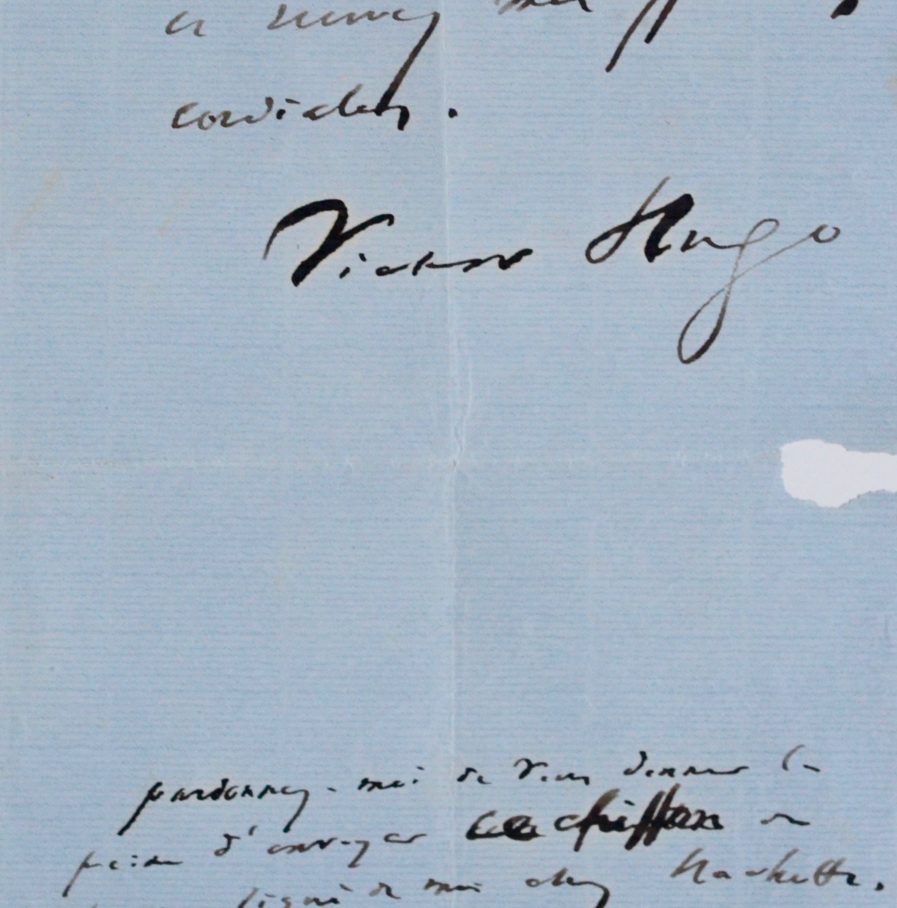 et
cordiales.
Victor Hugo
pardonnez-moi de vous donner la
peine d'envoyer ce chiffon
signé de moi chez Hachette.